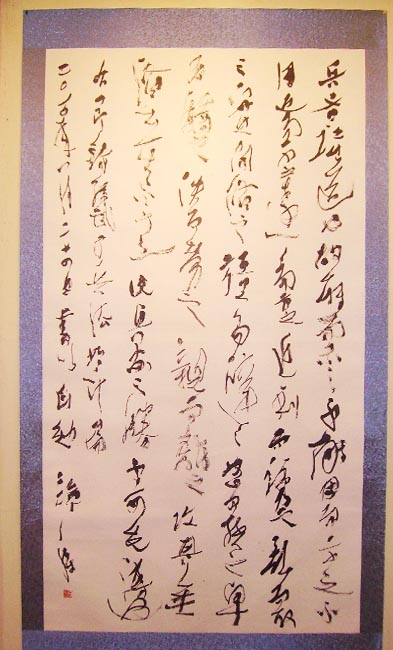 兵者詭道也故能而示之不能用而示之不
用近而示之遠遠而示之近利而誘之亂而取
之實而備之強而避之怒而撓之卑
而驕之佚而勞之親而離之攻其無
備出其不意此兵家之勝不可先傳也
孫武子兵法始計篇
二〇〇五年八月二十四日書以自勉